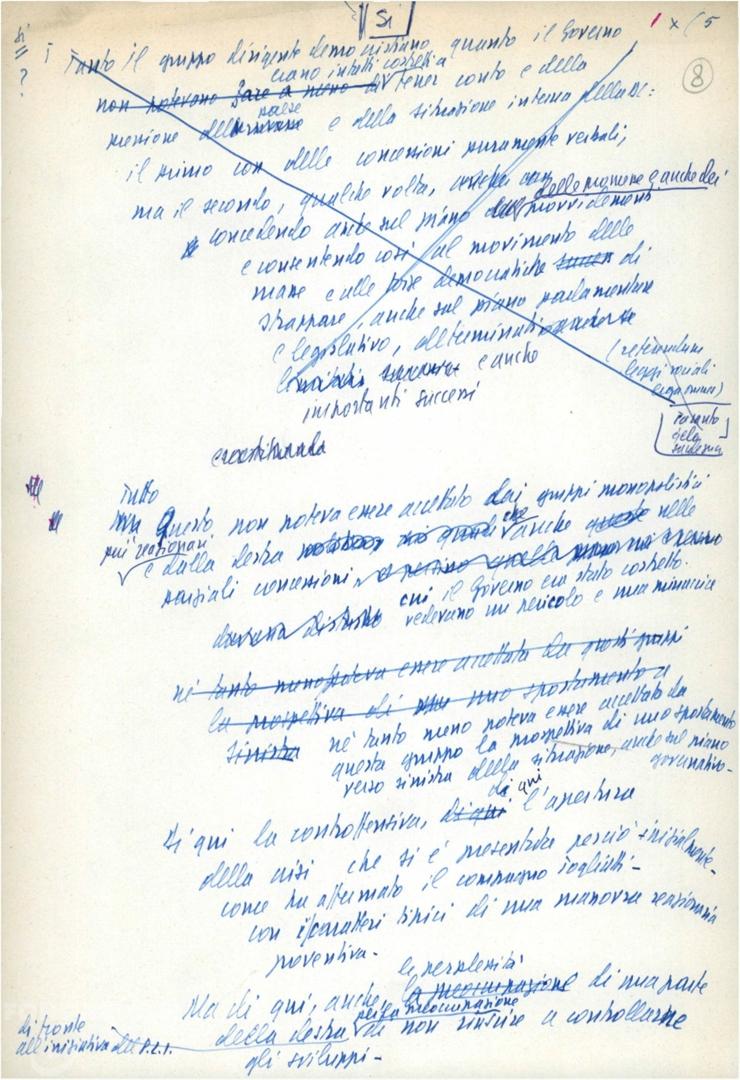 Si
1 x (5
Si
?
8
Tanto il gruppo dirigente democristiano quanto il Governo
erano infatti costretti a
non potevano fare a meno di tener conto e della
pressione del paese e della situazione interna della DC:
il primo con delle concessioni puramente verbali,
ma il secondo, qualche volta, anche con
delle promesse e anche dei
concedendo anche sul piano dei provvedimenti
e consentendo così al movimento delle
masse e alle forze democratiche di
strappare, anche sul piano parlamentare
e legislativo, determinati
limitati successi e anche
importanti successi
(referendum
leggi sociali
Tutto
Questo non poteva essere accettato dai gruppi monopolistici
più reazionari
e dalla destra che anche nelle
parziali concessioni
cui il Governo era stato costretto.
vedevano un pericolo e una minaccia
né tanto meno poteva essere accettata da questi gruppi
la prospettiva di uno spostamento a
sinistra né tanto meno poteva essere accettata da
questo gruppo la prospettiva di uno spostamento
verso sinistra della situazione, anche sul piano
governativo.
di qui
Di qui la controffensiva, di qui l'apertura
della crisi che si è presentata perciò inizialmente -
come ha affermato il compagno Togliatti -
con i caratteri tipici di una manovra reazionaria
preventiva.
le perplessità
Ma di qui, anche, la preoccupazione di una parte
e la preoccupazione
della destra di non riuscire a controllarne
di fronte
all'iniziativa del P.C.I.
gli sviluppi -